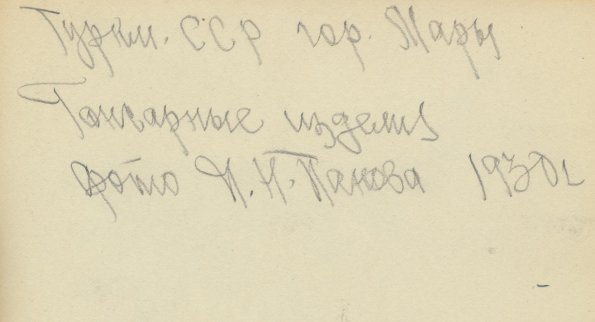 Туркм. ССР гор. Мары
Гончарные изделия
фото П. Н. Панова 1930 г